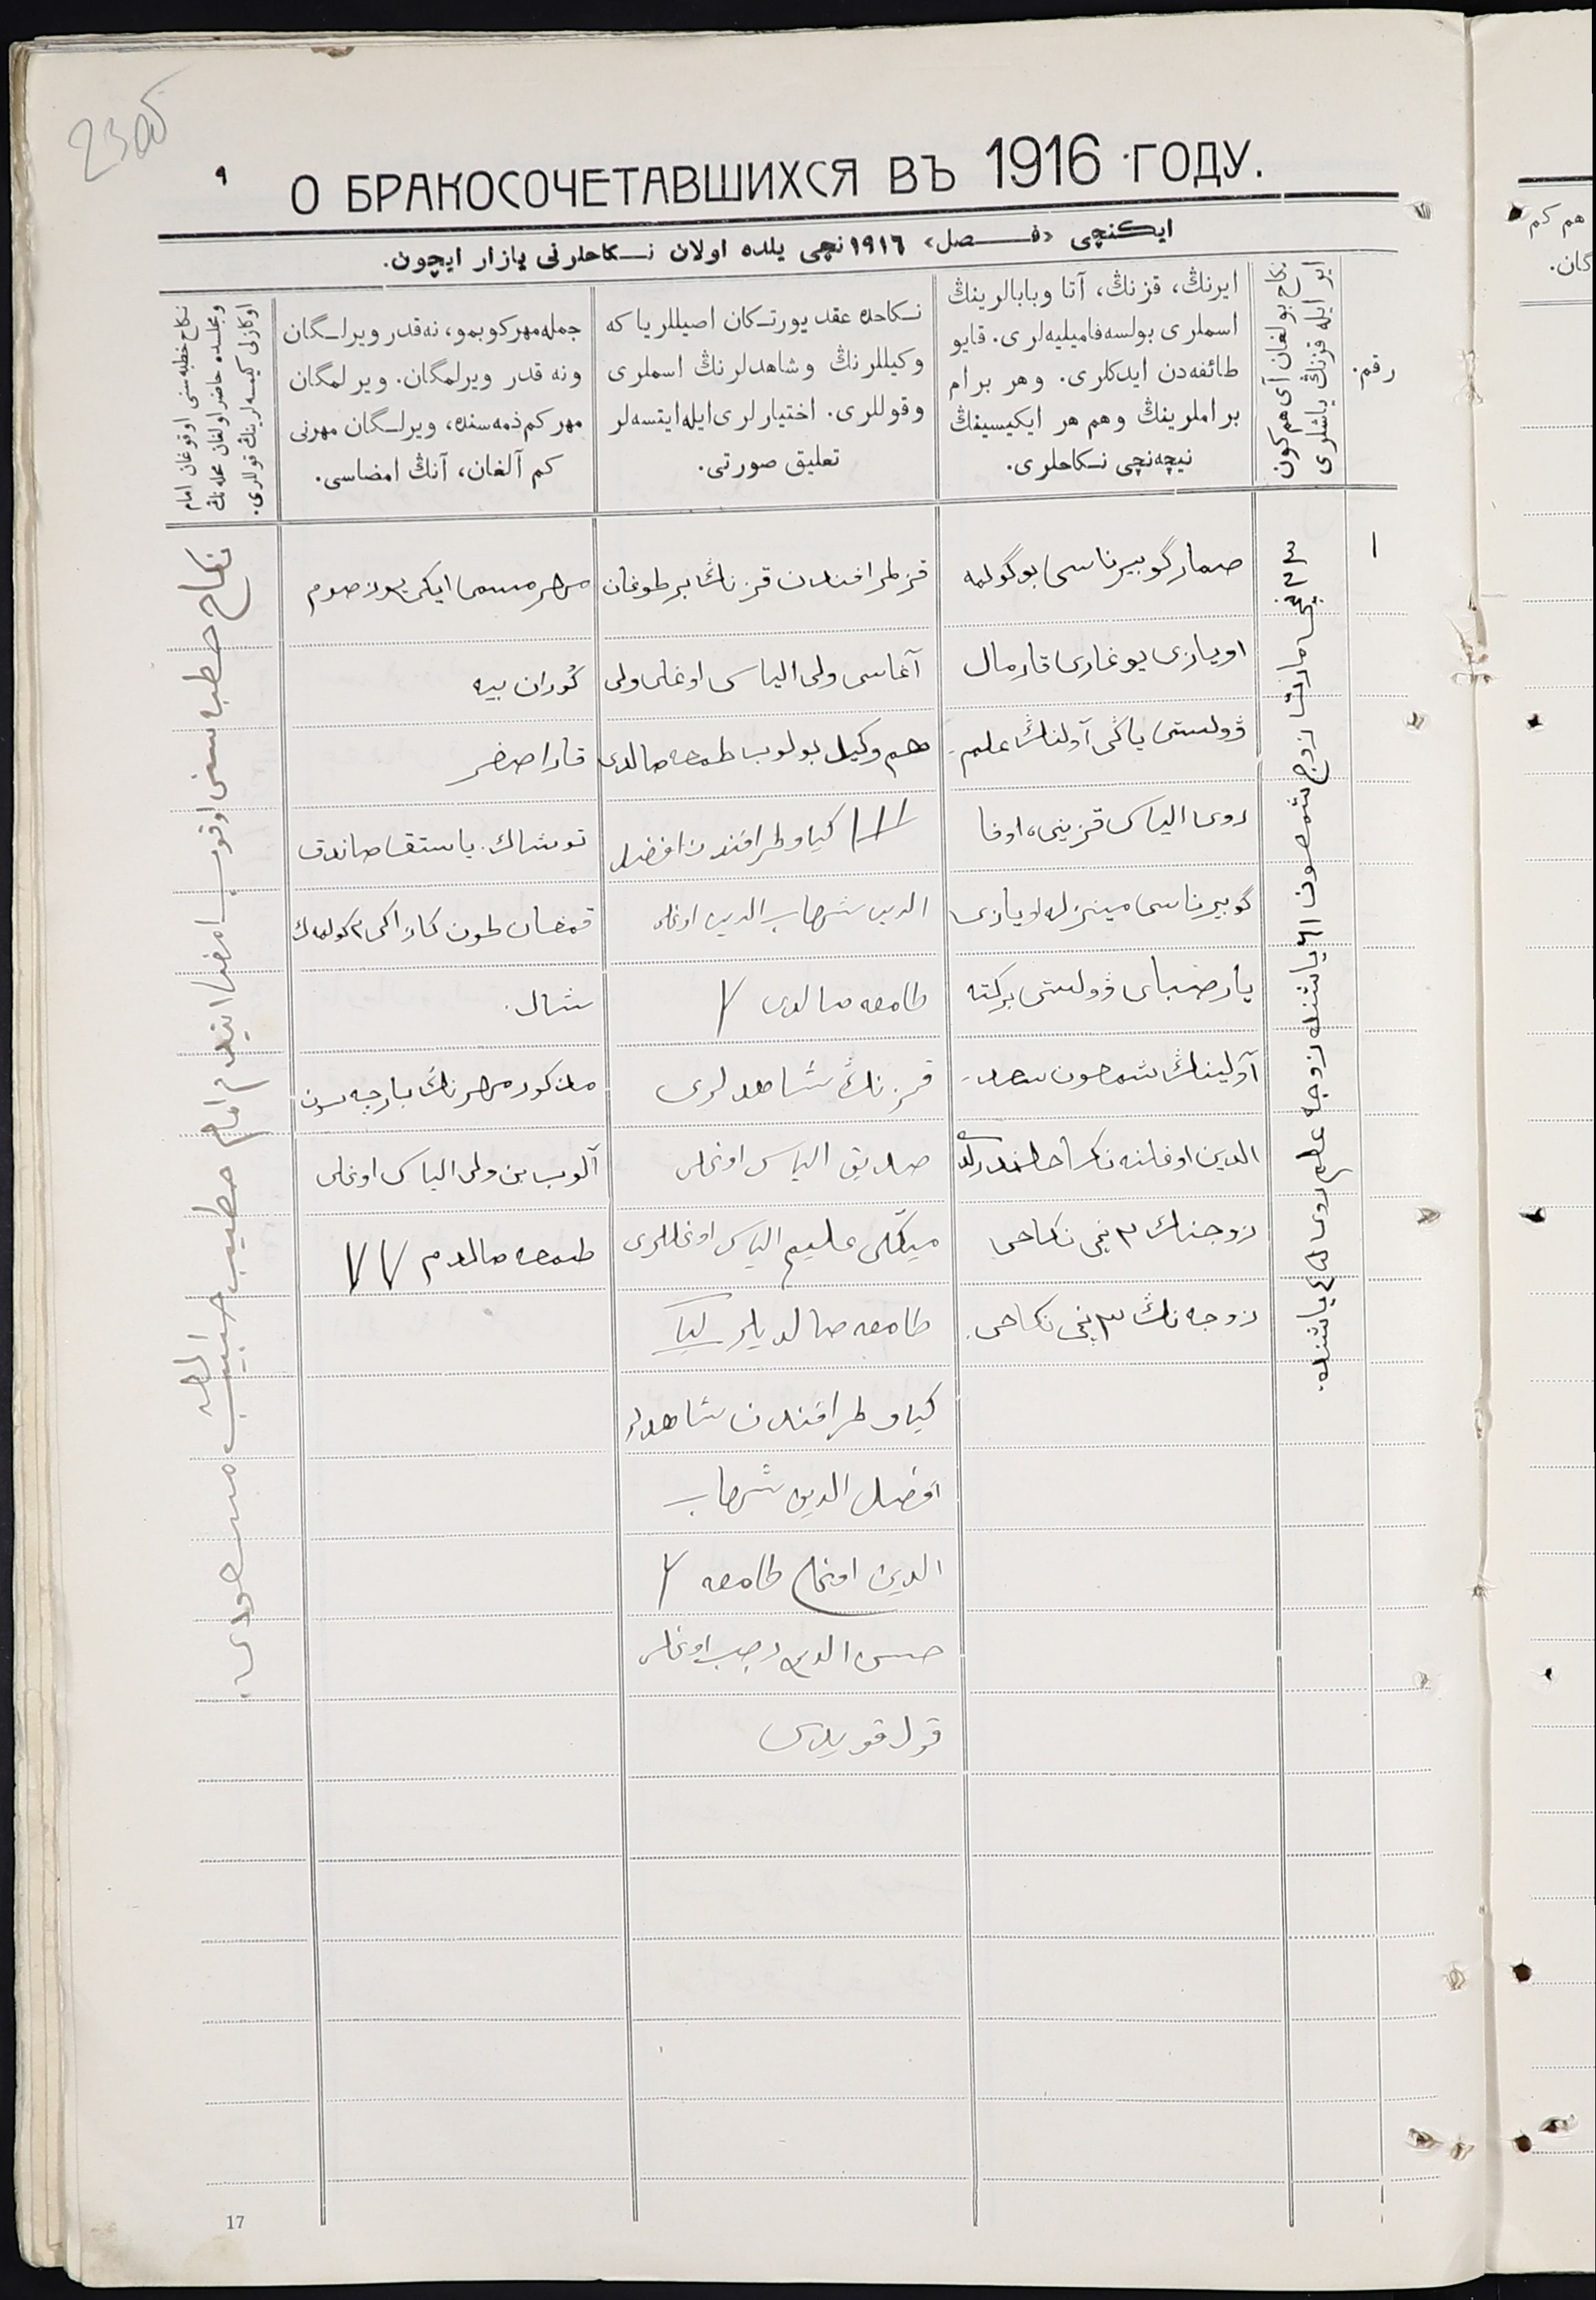 230об
٩
О БРАКОСОЧЕТАВШИХСЯ ВЪ 1916 ГОДУ.
ایكنچی «فصل» ١٩١٦ نچی یلده اولان نكاحلرنی یازار ایچون.
رقم.
نكاح بولغان آی هم كون
ایر ایله قزنڭ یاشلری
ایرنڭ، قزنڭ، آتا وبابالرینڭ
اسملری بولسه فامیلیه‌لری. قایو
طائفه‌دن ایدكلری. وهر برام
براملرینڭ وهم هر ایكیسینڭ
نیچه‌نچی نكاحلری.
نكاحده عقد یورتكان اصیللریا كه
وكیللرنڭ وشاهدلرنڭ اسملری
وقوللری. اختیارلری ایله ایتسه‌لر
تعلیق صورتی.
جمله مهر كوبمو، نه‌قدر ویرلگان
ونه قدر ویرلمگان. ویرلمگان
مهر كم ذمه‌سنده، ویرلگان مهرنی
كم آلغان، آنڭ امضاسی.
نكاح خطبه‌سنی اوقوغان امام
ومجلسده حاضر اولغان محله‌نڭ
اوكازلی كیمسه‌لرینڭ قوللری.
١
٢٣نچی مارتدا زوج شمعون ٦١ یاشنده زوجه علم روی ٤٥ یاشنده.
صمار گوبیرناسی بوگولمه
اویازی یوغاری قارمال
ۋولستی یاڭی آولنڭ علم-
روی الیاس قزینی، اوفا
گوبیرناسی مینزله اویازی
یارصبای ۋولستی بركته
آولینڭ شمعون سعد-
الدین اوغلنه نكاحلندرلدی
زوجنڭ ٢ نچی نكاحی
زوجه نڭ ٣ نچی نكاحی.
قز طرافندن قزنڭ بر طوغان
آغاسی ولی الیاس اوغلی ولی
هم وكیل بولوب طمعه صالدی
/// كیاو طرافندن افضل
الدین شهاب الدین اوغلی
طامعه صالدی
قزنڭ شاهدلری
صدیق الیاس اوغلی
علیم الیاس اوغللری
طامعه صالدیلر
كیاو طرافندن شاهدلر
افضل الدین شهاب
الدین اوغلی طامعه
حسن الدین رجب اوغلی
قول قویدی
مهر مسمی ایكی یوز صوم
قارا صغر
توشاك. یاستق صاندق
طون كولمه‌ك
شال.
مذكور مهرنڭ بارچه‌سن
آلوب من ولی الیاس اوغلی
طمعه صالدم
نكاح خطبه سنی اوقوب امضا ایتدم امام خطیب حبیب الله مسعودی.
17
هم كم
گان.